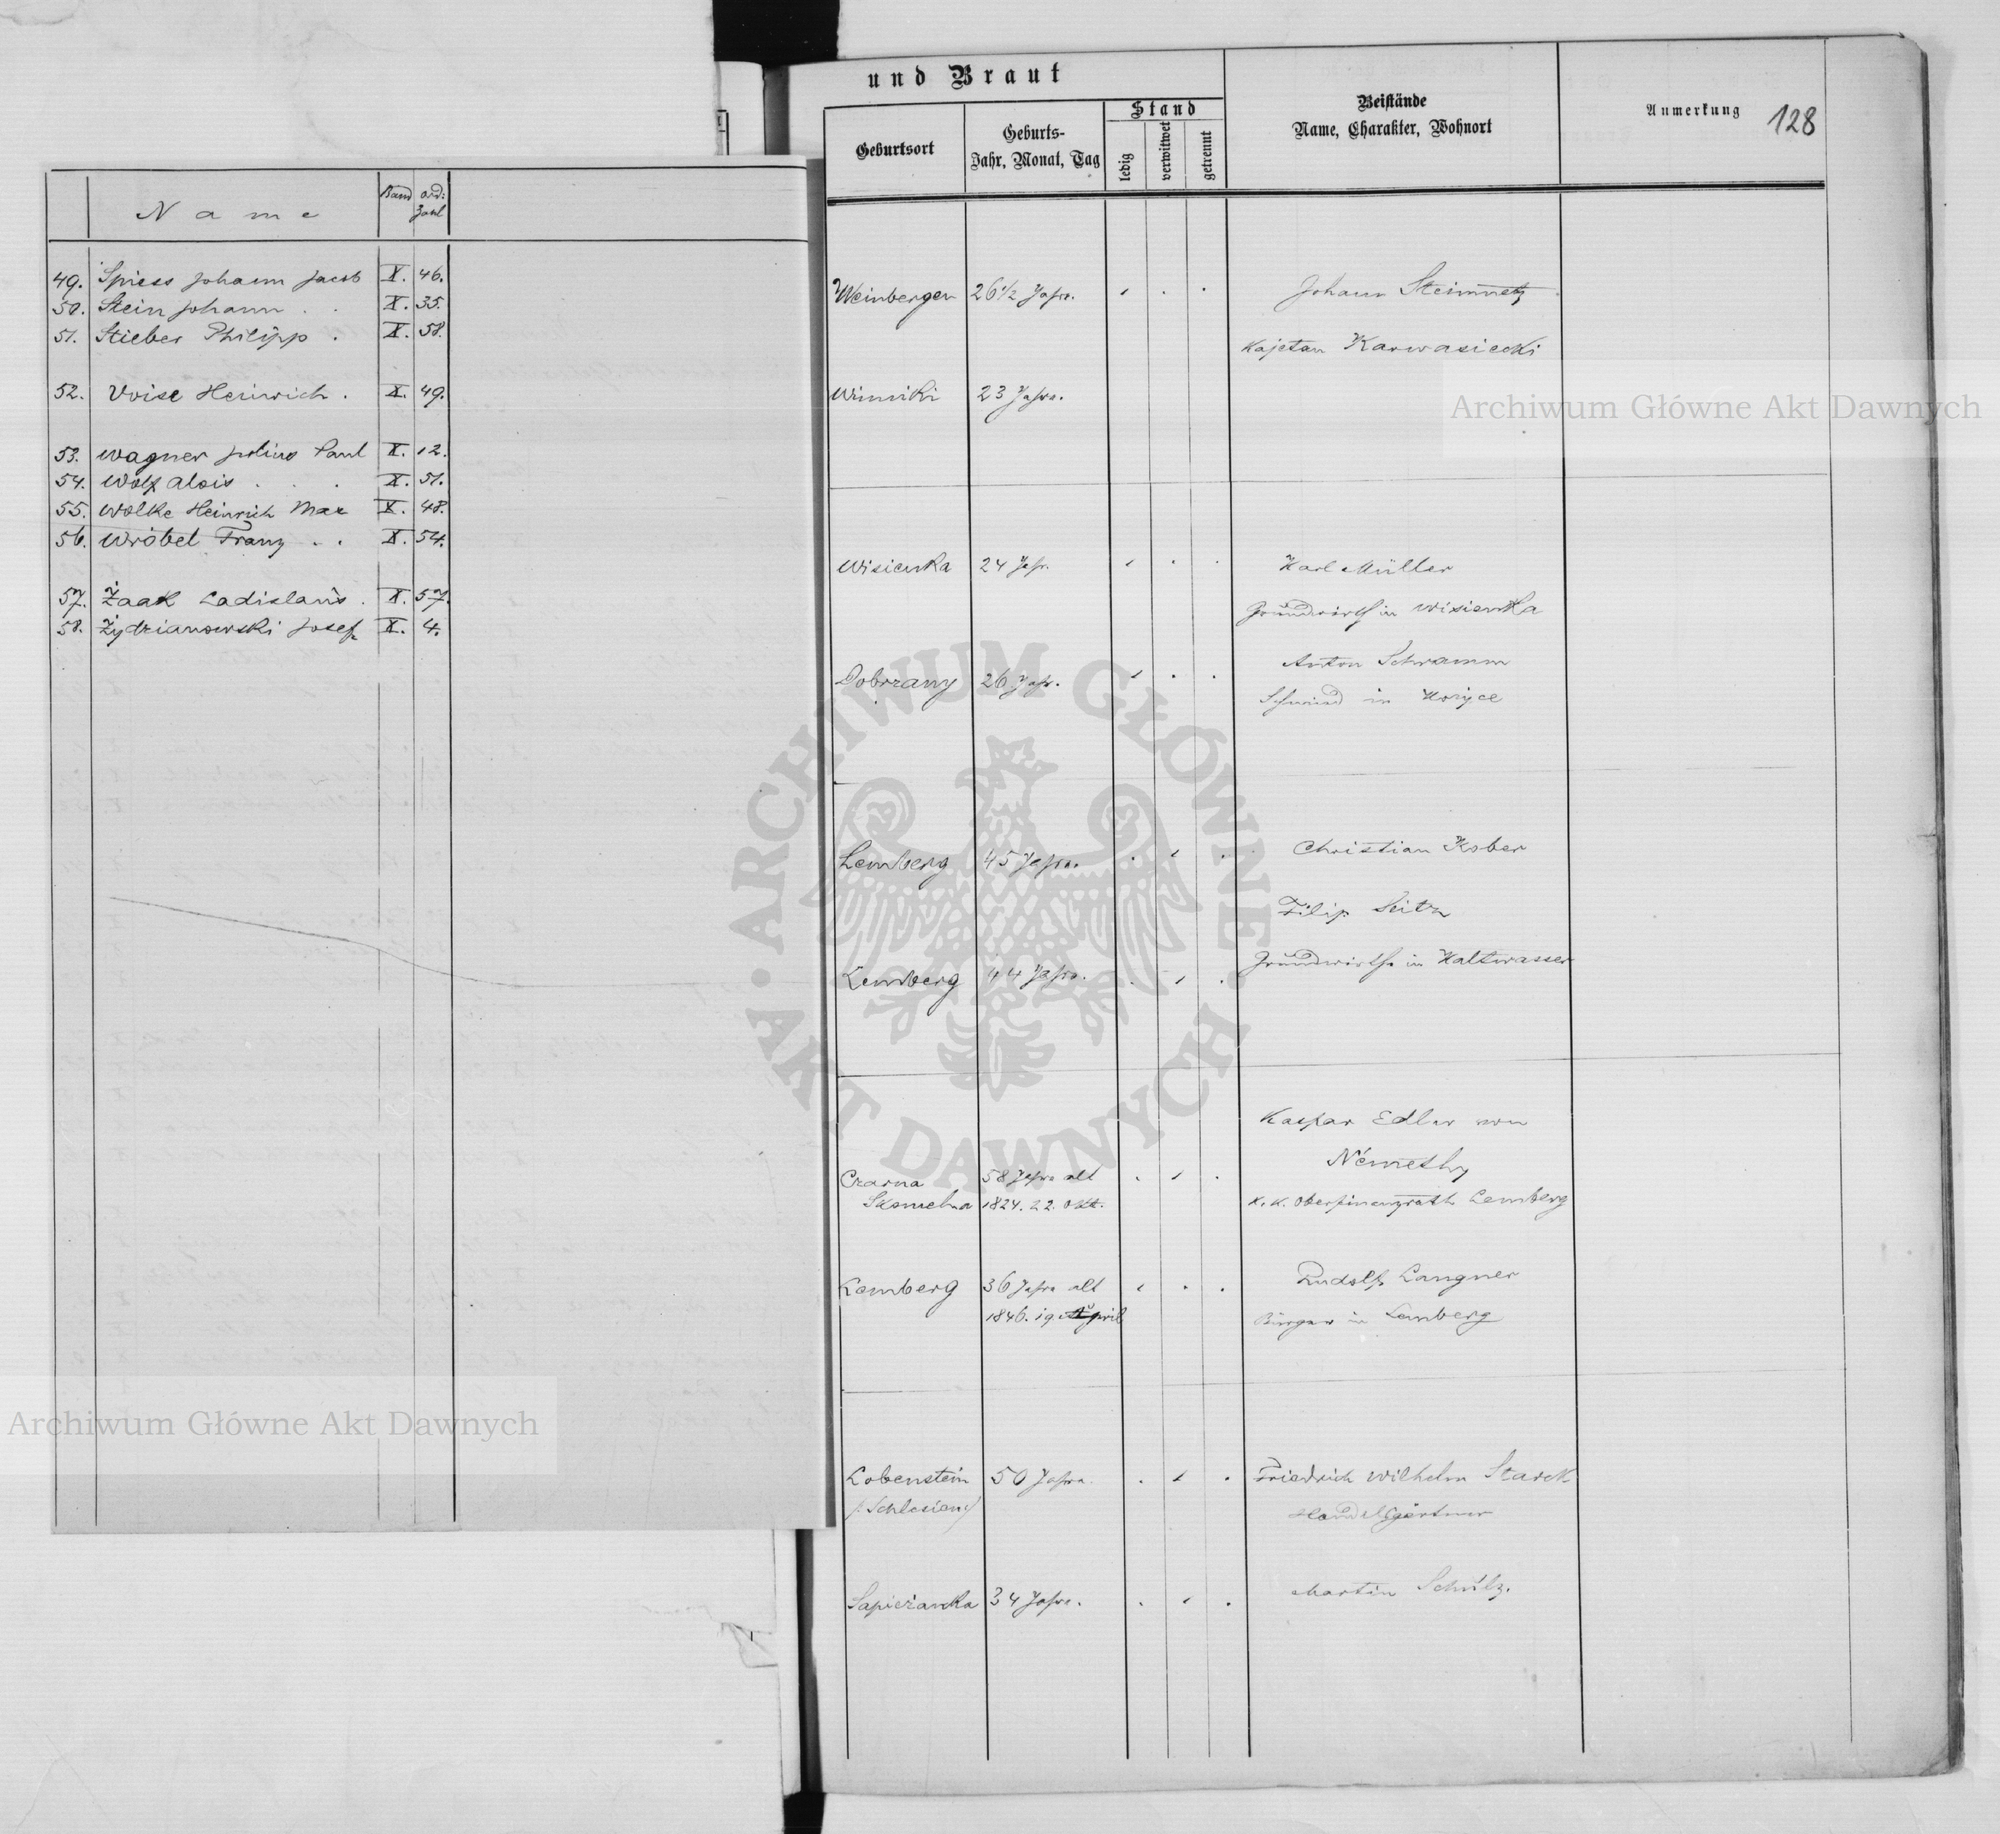 Name Band Ord: Zahl
49. Spiess Johann Jacob X. 46.
50. Stein Johann . . X. 35.
51. Stieber Philipp . X. 58.
52. Voise Heinrich . X. 49.
53. Wagner Julius Paul X. 12.
54. Wolf Alois . . . X. 51.
55. Wolke Heinrich Max X. 48.
56. Wróbel Franz . . X. 54.
57. Żaak Ladislaus . X. 57.
58. Żydzianowski Josef X. 4.
und Braut
Geburtsort
Geburts-
Jahr, Monat, Tag
Stand
ledig
verwitwet
getrennt
Beistände
Name, Charakter, Wohnort
Anmerkung
128
Weinbergen 26 1/2 Jahre. Johann Steinmetz
Kajetan Karwasiecki
Winniki 23 Jahre.
Wisienka 24 Jahr. Karl Müller
Grundwirth in Wisienka
Anton Schramm
Dobrzany 26 Jahr.
Schmied in Horyce
Lemberg 45 Jahre. Christian Kober
Filip Seitz
Grundwirthe in Kaltwasser
Lemberg 44 Jahre.
Kaspar Edler von
Némethy
Czarna 58 Jahre alt
Skomelna 1824. 22. Okt. k. k. Oberfinanzrath Lemberg
Lemberg 36 Jahre alt Rudolf Langner
1846. 19. April Bürger in Lemberg
Lobenstein 50 Jahre. Friedrich Wilhelm Starck
/: Schlesien :/ Handelsgärtner
Sapieżanka 34 Jahre. Martin Schülz.
Archiwum Główne Akt Dawnych
Archiwum Główne Akt Dawnych
· ARCHIWUM GŁÓWNE · AKT DAWNYCH